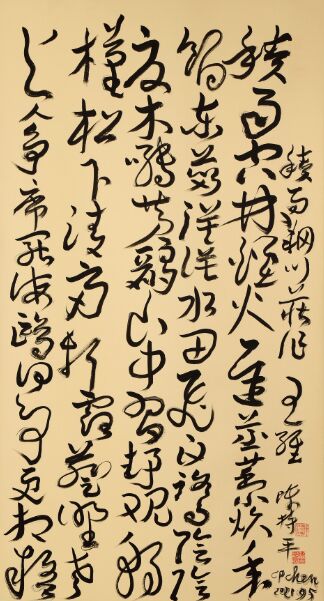 積雨空林煙火遲蒸藜炊黍
餉東菑漠漠水田飛白鷺陰陰
夏木囀黃鸝山中習靜觀朝
槿松下清齋折露葵野老
與人爭席罷海鷗何事更相疑
積雨輞川莊作 王維
CPChen
2021.9.5